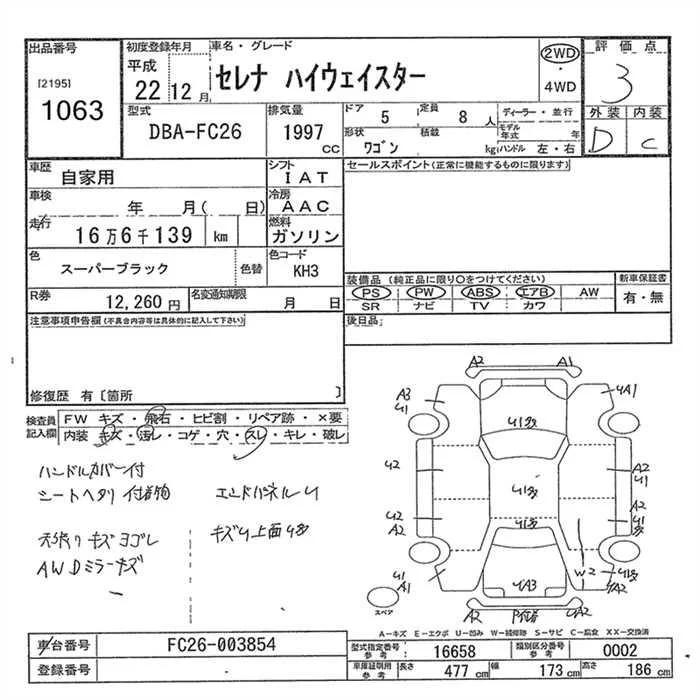 出品番号
[2195]
1063
初度登録年月
平成
22 12 月
車名・グレード
セレナ ハイウェイスター
2WD
・
4WD
評価点
3
外装 内装
D C
型式
DBA-FC26
排気量
1997
CC
ドア
5
定員
8 人
形状
ワゴン
積載
kg
ディーラー・並行
モデル年式 年
ハンドル 左・右
車歴
自家用
シフト
IAT
車検
年 月( 日)
冷房
AAC
走行
16万6千139 km
燃料
ガソリン
色
スーパーブラック
色替
色コード
KH3
R券
12,260 円
名変通知期限
月 日
セールスポイント(正常に機能するものに限ります)
装備品 (純正品に限り○をつけてください)
PS PW ABS エアB AW
SR ナビ TV カワ
新車保証書
有・無
後日品
注意事項申告欄(不具合内容等は具体的に記入して下さい)
修復歴 有〔箇所 〕
検査員記入欄
FW キズ・飛石・ヒビ割・リペア跡・×要
内装 キズ・汚レ・コゲ・穴・スレ・キレ・破レ
ハンドルカバー付
シートヘタリ 付着物
エンドパネルU
天張りキズヨゴレ
キズU上面U多
AWDミラーキズ
A2 A1
A3 U1
UA1
U1多
U2
A2 U1
U1多
U2 A2
A2 U1多
U1多
W2
U1 A2
U1多 UA2
UA3
スペア
A2
UA2
A-キズ E-エクボ U-凹み W-補修跡 S-サビ C-腐食 XX-交換済
車台番号
FC26-003854
登録番号
型式指定番号 参考
16658
類別区分番号 参考
0002
車庫証明用 参考
長さ 477 cm 幅 173 cm 高さ 186 cm